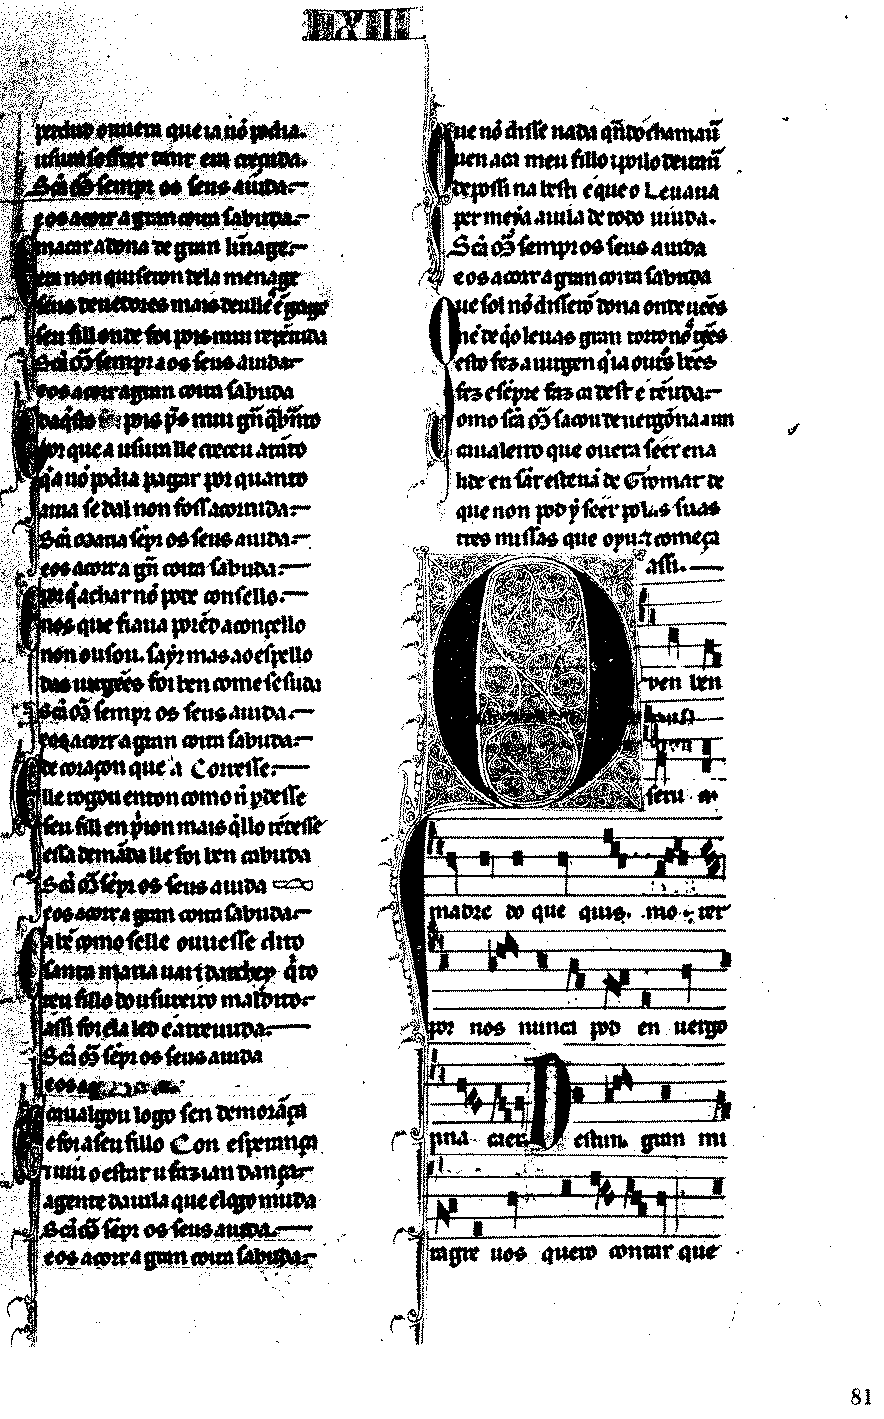 LXIII
perdudo ouuera que ia nõ podia.
usura soffrer tant era creçuda.
Sc̃a M̃ sempr os seus aiuda.
e os acorr a gran coita sabuda.
macar a dona de gran linnage.
era non quiseron dela menage
seus deuedores mais deulle en gage
seu fill onde foi pois mui repẽtuda
Sc̃a M̃ sempr aos seus aiuda
e os acorr a gran coita sabuda
pois
por que a usura lle creceu atãto
q̃a nõ podia pagar por quanto
auia se dal non foss acorruda.
Sc̃a Maria sẽpr os seus aiuda.
e os acorr a grã coita sabuda.
por q̃ achar nõ pode consello.
nos que fiaua porẽd a concello
non ousou. sayr mas ao espello
das uirgẽes foi ben come sesuda
Sc̃a M̃ sempr os seus aiuda.
e os acorr a gran coita sabuda.
de coraçon que a Comesse.
lle rogou enton como ri podesse
seu fill en prijon mais q̃ llo rẽdesse
essa demãda lle foi ben cabuda
Sc̃a M̃ sẽpr os seus aiuda
e os acorr a gran coita sabuda.
ali como selle ouuesse dito
santa maria uai
teu fillo do usureiro maldito.
assi foi ela led e atreuuda.
Sc̃a M̃ sẽpr os seus aiuda
e os a
caualgou logo sen demorãça
e foi a seu fillo Con esperança
uiu o estar u fazian dança.
a gente da uila que el
Sc̃a M̃ sẽpr os seus aiuda.
e os acorr a gran coita sabuda.
Que nõ disse nada q̃ndo chamau̅
uen aca meu fillo
depos si na besti e que o Leuaua
per meya a uila de todo uiuda.
Sc̃a M̃ sempr os seus aiuda
e os acorr a gran coita sabuda
Que sol nõ disserõ dona onde uẽes
nẽ de q̃ o leuas gran torto nõ tẽes
esto fez a uirgen q̃ ia outs̃ bẽes
fez e sẽpre faz ca dest e tẽuda.
Como sc̃a M̃ sacou de uergõna a un
caualeiro que ouuera seer ena
lide en sãt esteuã de Gormaz de
que non pod y seer polas suas
tres missas que oyu. e começa
assi.
Quen ben
seru a
madre do que quis. mo rer
por nos nunca pod en uergo
nna caer. Dest un gran mi
ragre uos quero contar que
81